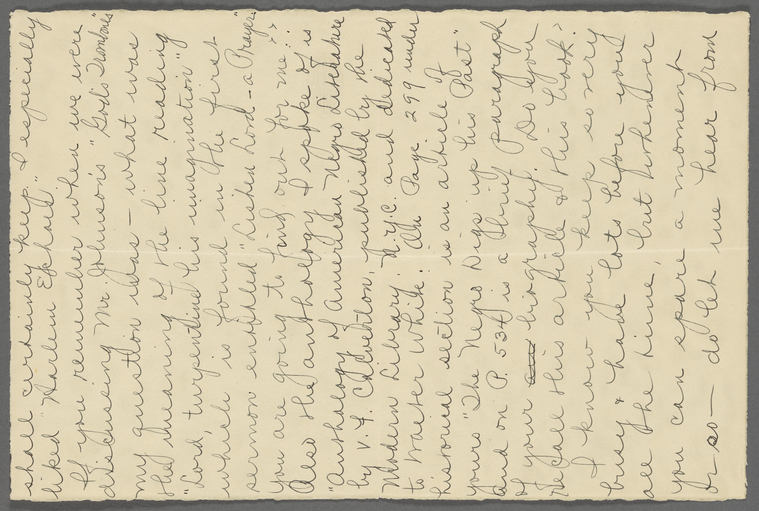 shall certainly keep. I especially
liked "Harlem
If you remember when we were
discussing Mr. Johnson's "God's Trombones"
my question was — what was
the meaning of the line reading
"Lord, turpentine his imagination"
which is found in the first
sermon entitled "Listen Lord — a Prayer."
You are going to find out for me??
Also the anthology I spoke of is
"Anthology of American Negro Literature
by V. F. Calverton, published by the
Modern Library, N.Y.C. and dedicated
to Walter White. On Page 299 under
historical section is an article of
yours "The Negro Digs up his Past"
and on P. 534 is a short paragraph
of your biography. Do you
recall this article & this book?
I know you keep so very
busy & have lots before you
all the time, but whenever
you can spare a moment
or so — do let me hear from